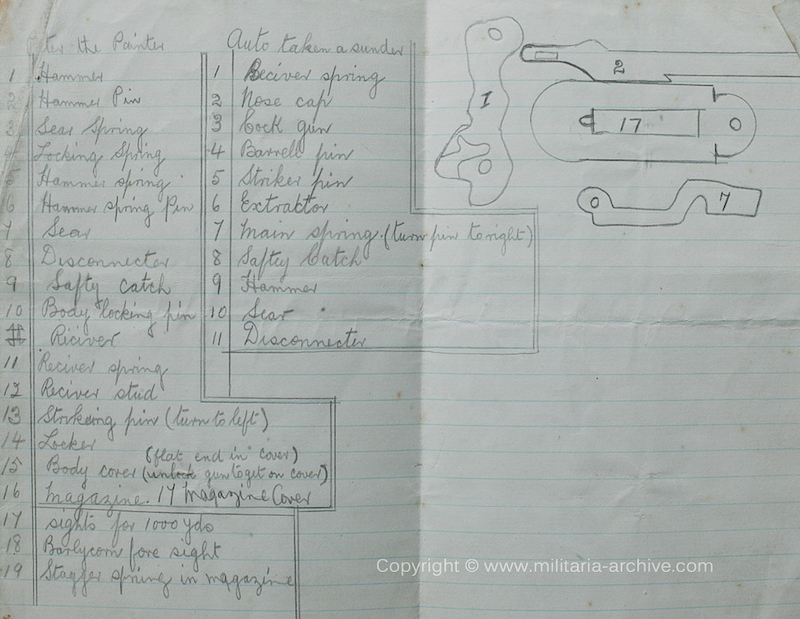 After the Painter
1 Hammer
2 Hammer Pin
3 Sear Spring
4 Locking Spring
5 Hammer spring
6 Hammer spring Pin
7 Sear
8 Disconnecter
9 Safty catch
10 Body locking pin
# Reciver
11 Reciver spring
12 Reciver stud
13 Strikeing pin (turn to left)
14 Locker
(flat end in cover)
15 Body cover (unlock gun to get on cover)
16 Magazine. 17 Magazine Cover
17 sights for 1000 yds
18 Barlycorn fore sight
19 Stagger spring in magazine
Auto taken a sunder
1 Reciver spring
2 Nose cap
3 Cock gun
4 Barrell pin
5 Striker pin
6 Extraktor
7 Main spring. (turn pin to right)
8 Safty Catch
9 Hammer
10 Sear
11 Disconnecter
1
2
17
7
Copyright © www.militaria-archive.com